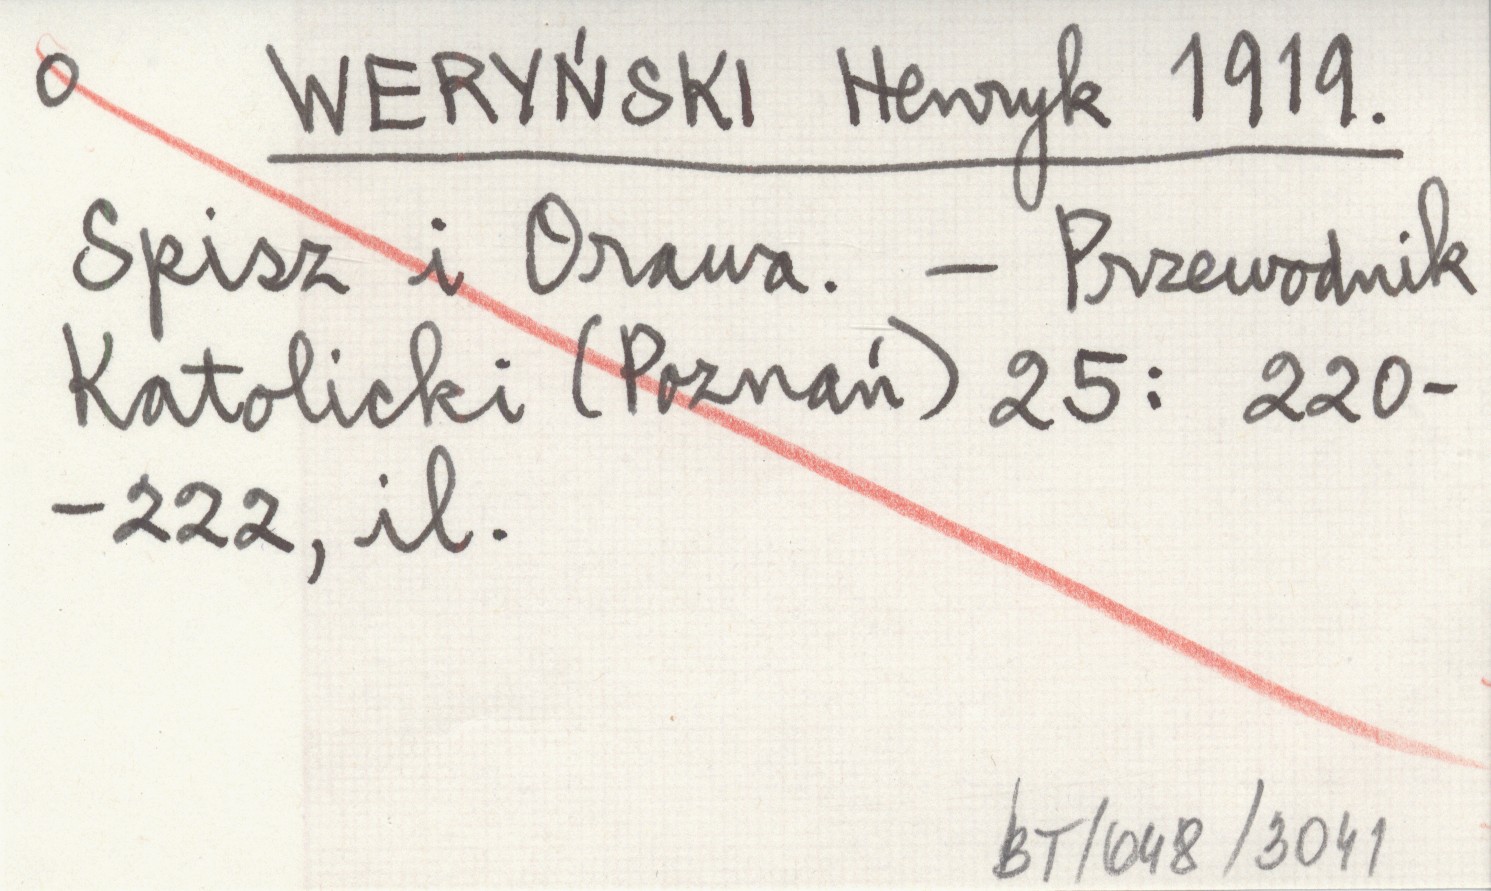 O WERYŃSKI Henryk 1919.
Spisz i Orawa. — Przewodnik
Katolicki (Poznań) 25: 220-
-222, il.
BT/648/3041